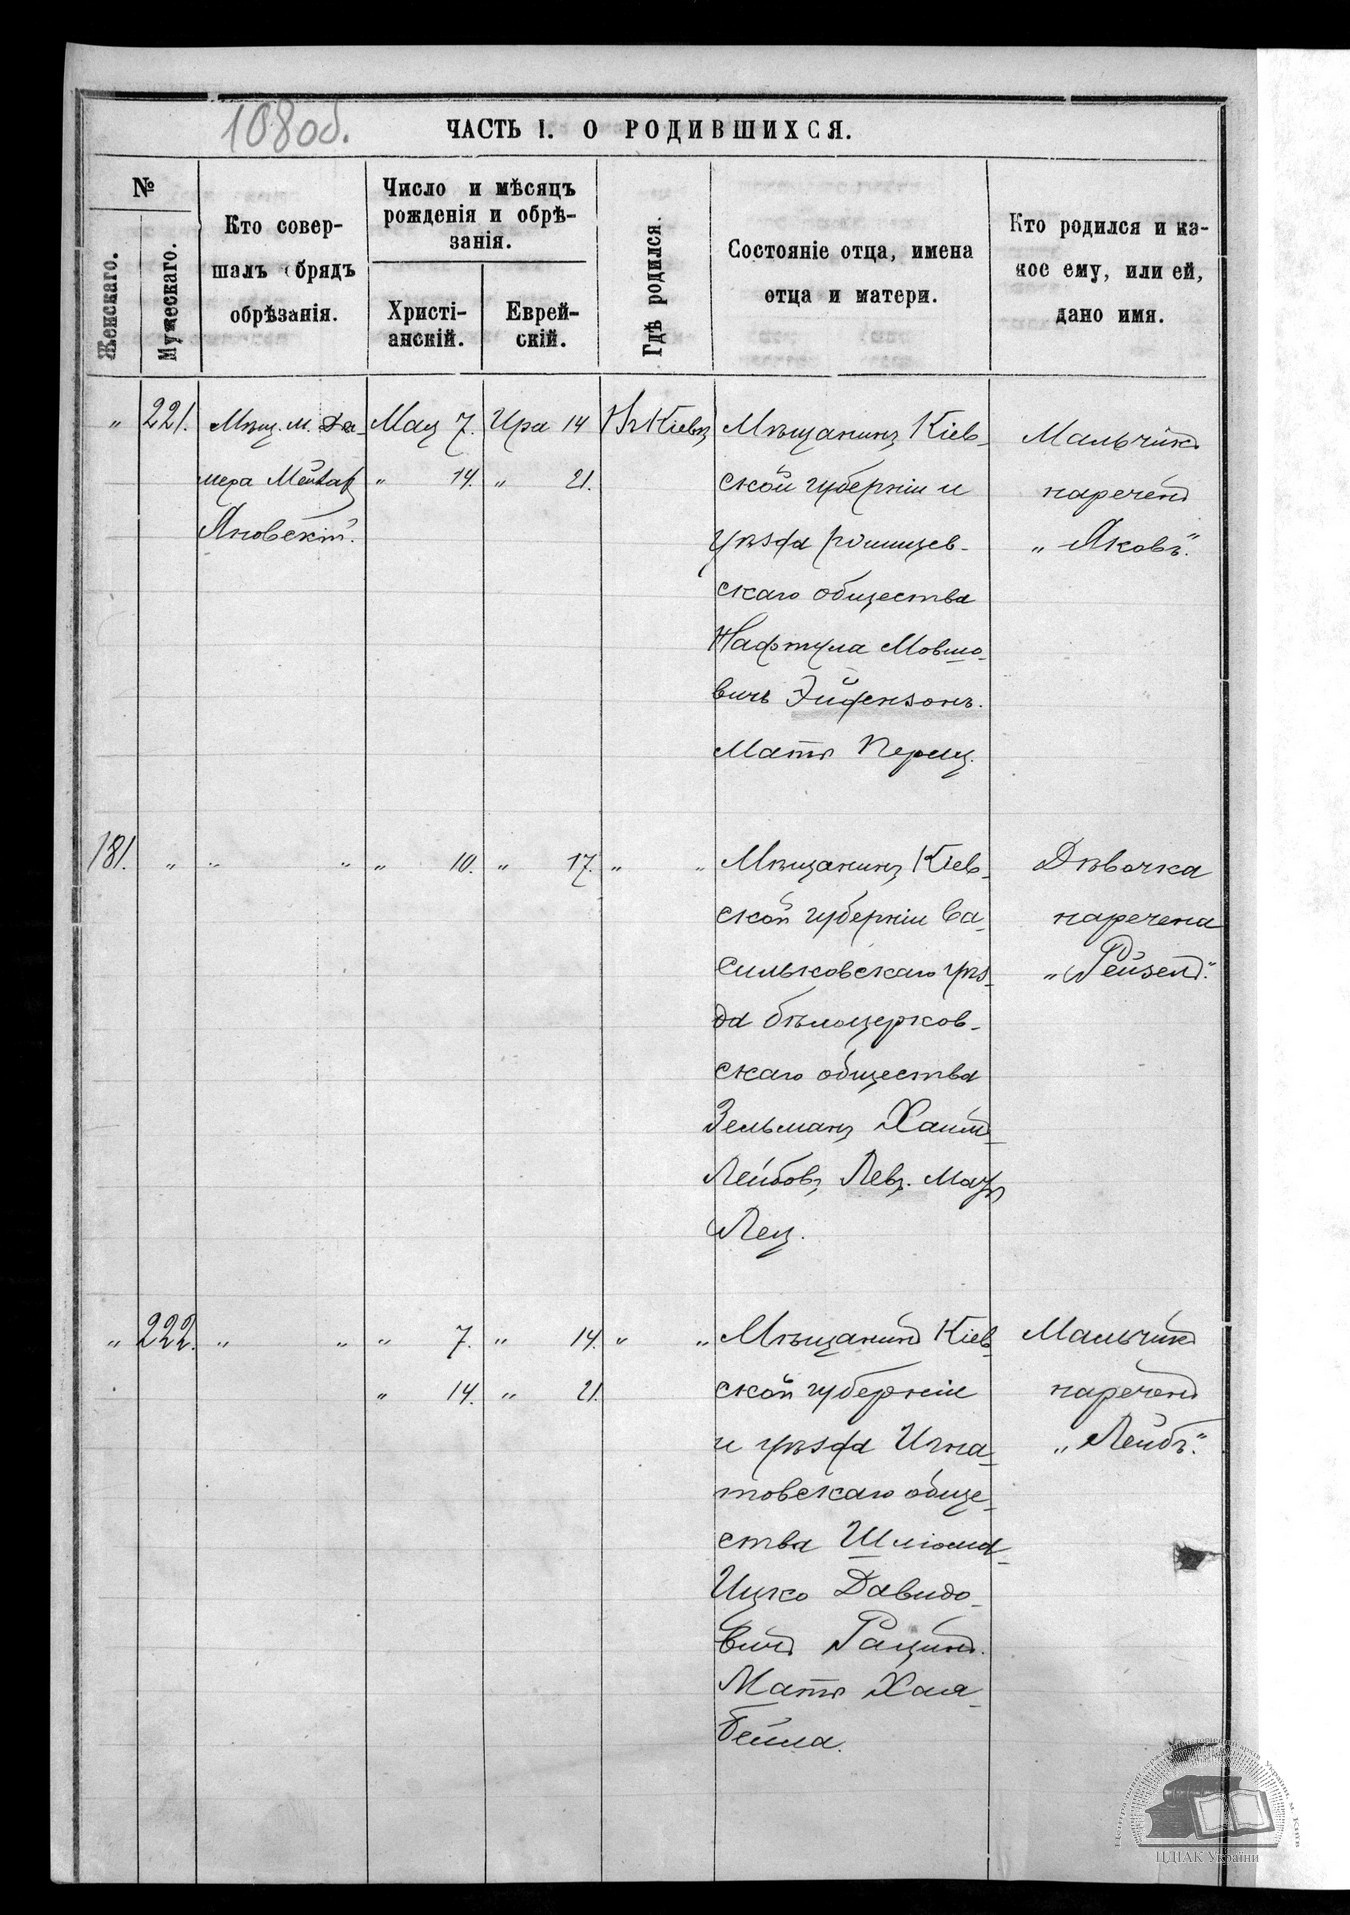 108об.
ЧАСТЬ I. О РОДИВШИХСЯ.
№
Женскаго.
Мужескаго.
Кто совер-
шалъ обрядъ
обрѣзанія.
Число и мѣсяцъ
рожденія и обрѣ-
занія.
Христі-
анскій.
Еврей-
скій.
Гдѣ родился.
Состояніе отца, имена
отца и матери.
Кто родился и ка-
кое ему, или ей,
дано имя.
„ 221. Мѣщ. м.
Яновскій.
Мая 7. Ира 14
„ 14. „ 21.
Въ Кіевѣ
Мѣщанинъ Кіев-
ской губерніи и
уѣзда
скаго общества
Нафтула Мовшо-
вичъ Эйдензонъ.
Мать Перля.
Мальчикъ
нареченъ
„Яковъ“.
181. „ „ „ „ 10. „ 17. „ „
Мѣщанинъ Кіев-
ской губерніи Ва-
сильковскаго уѣз-
да бѣлоцерков-
скаго общества
Зельманъ Хаимъ-
Лейбовъ Левъ. Мать
Лея.
Дѣвочка
наречена
„Рейзель“.
„ 222. „ „ „ 7. „ 14. „ „
„ 14. „ 21.
Мѣщанинъ Кіев
ской губерніи
и уѣзда Игна-
товскаго обще-
ства Шліома-
Ицко Давидо-
вичъ Рацинъ.
Мать Хая-
Бейла.
Мальчикъ
нареченъ
„Лейбъ“.
ЦДІАК України